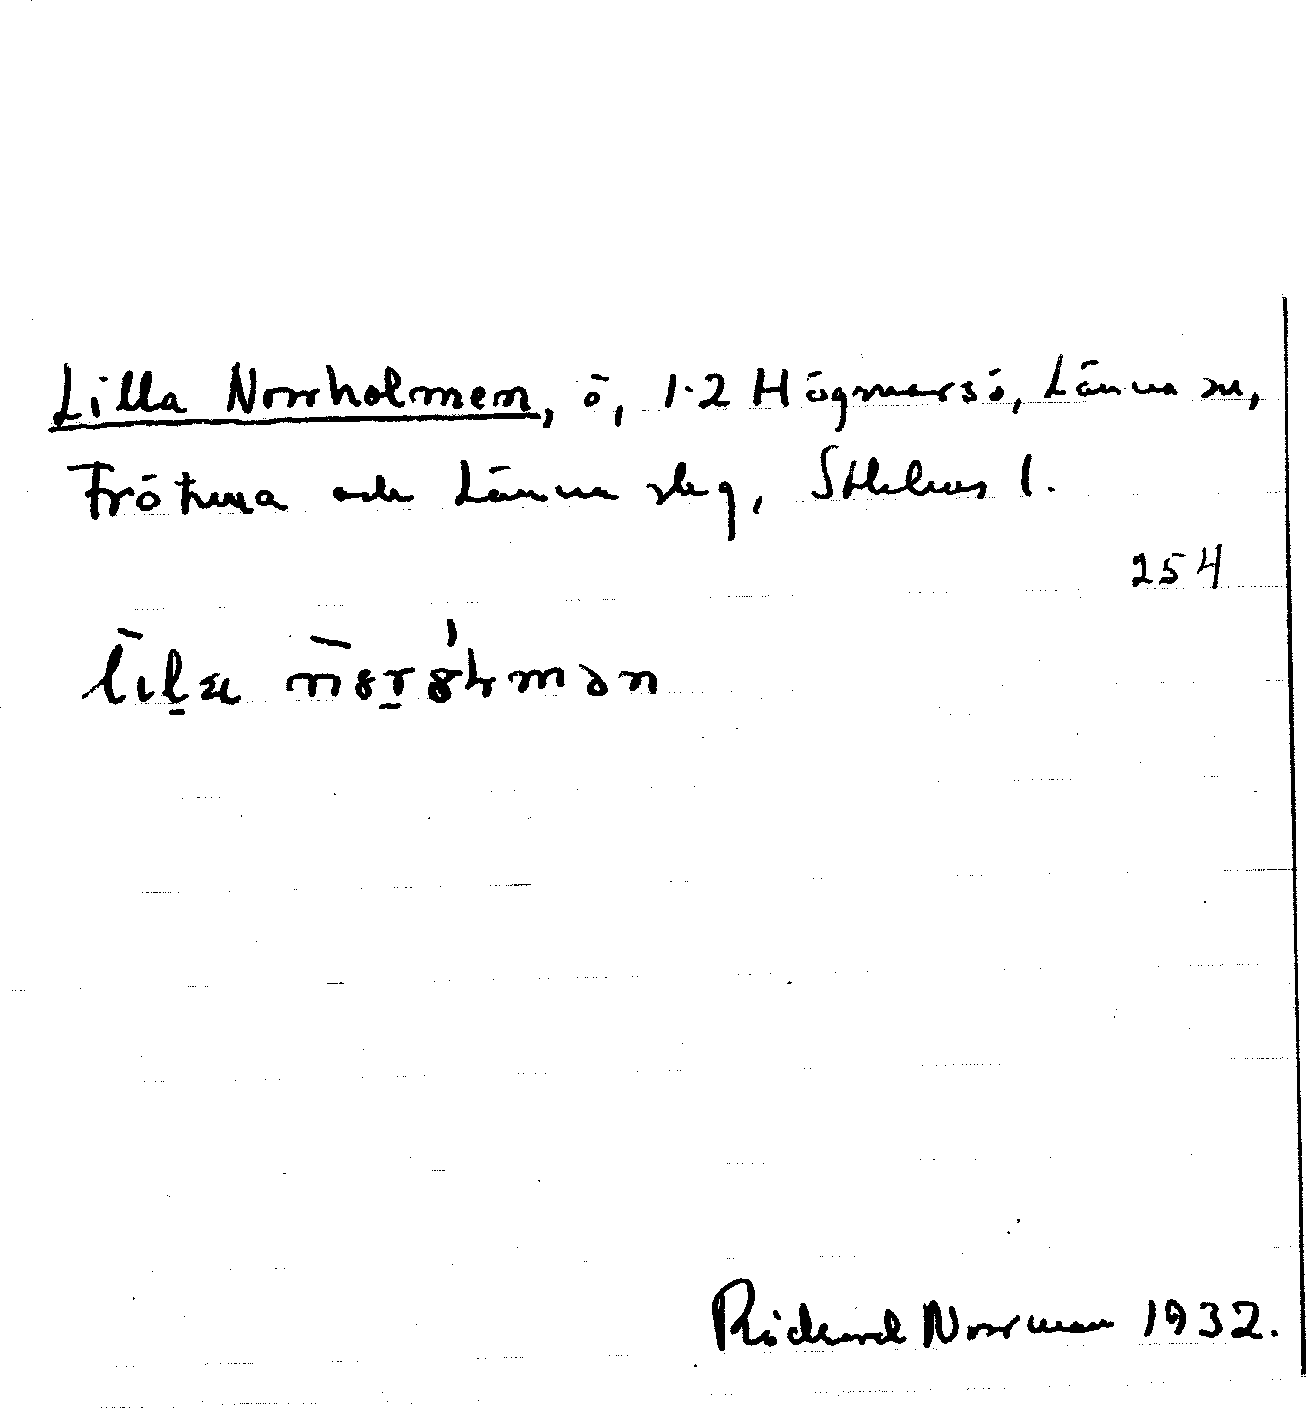 Lilla Norrholmen, ö, 1-2 Högmarsö, Länna sn,
Frötuna och Länna slg, Sthlms l.
254
Rickard Norrman 1932.